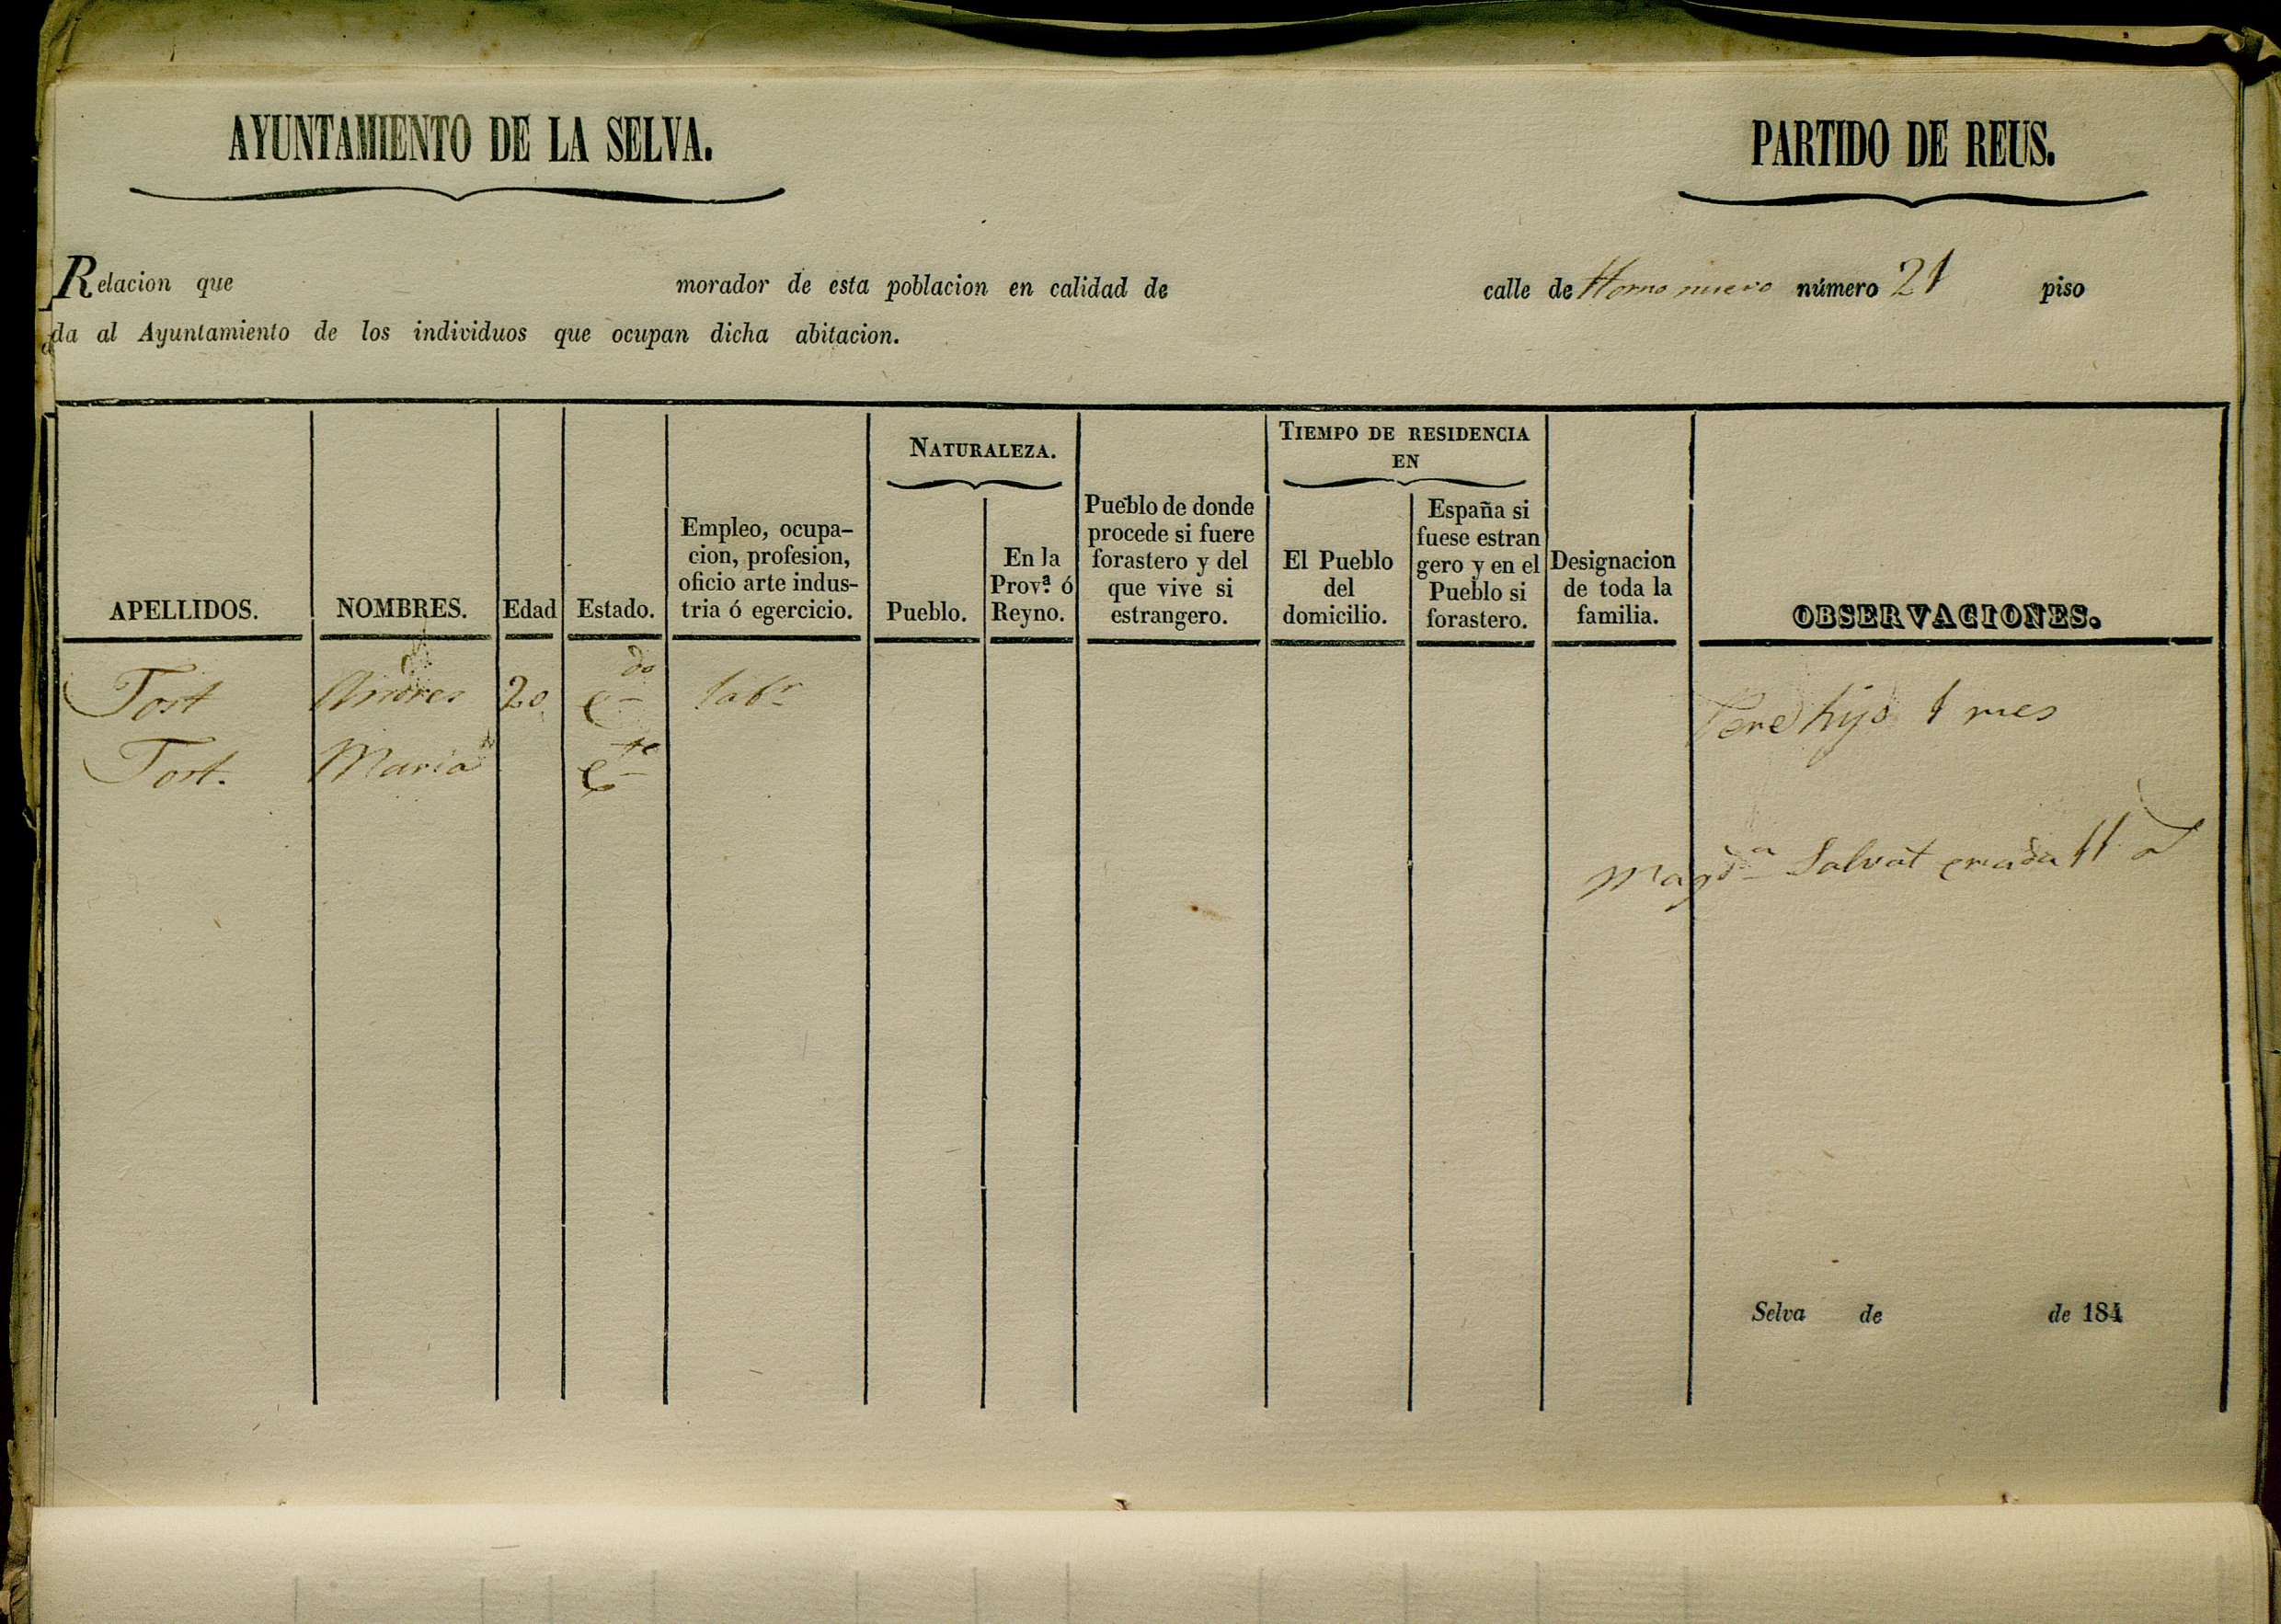 AYUNTAMIENTO DE LA SELVA.
PARTIDO DE REUS.
Relacion que morador de esta poblacion en calidad de calle de Horno nuevo número 21 piso
da al Ayuntamiento de los individuos que ocupan dicha abitacion.
APELLIDOS.
NOMBRES.
Edad
Estado.
Empleo, ocupa-
cion, profesion,
oficio arte indus-
tria ó egercicio.
NATURALEZA.
Pueblo.
En la
Prov.ª ó
Reyno.
Pueblo de donde
procede si fuere
forastero y del
que vive si
estrangero.
TIEMPO DE RESIDENCIA
EN
El Pueblo
del
domicilio.
España si
fuese estran
gero y en el
Pueblo si
forastero.
Designacion
de toda la
familia.
OBSERVACIONES.
Tort Andres 20 C.do Labr
hijo 1 mes
Tort. Maria C.te
Magd.a Salvat criada 11 a
Selva de de 184